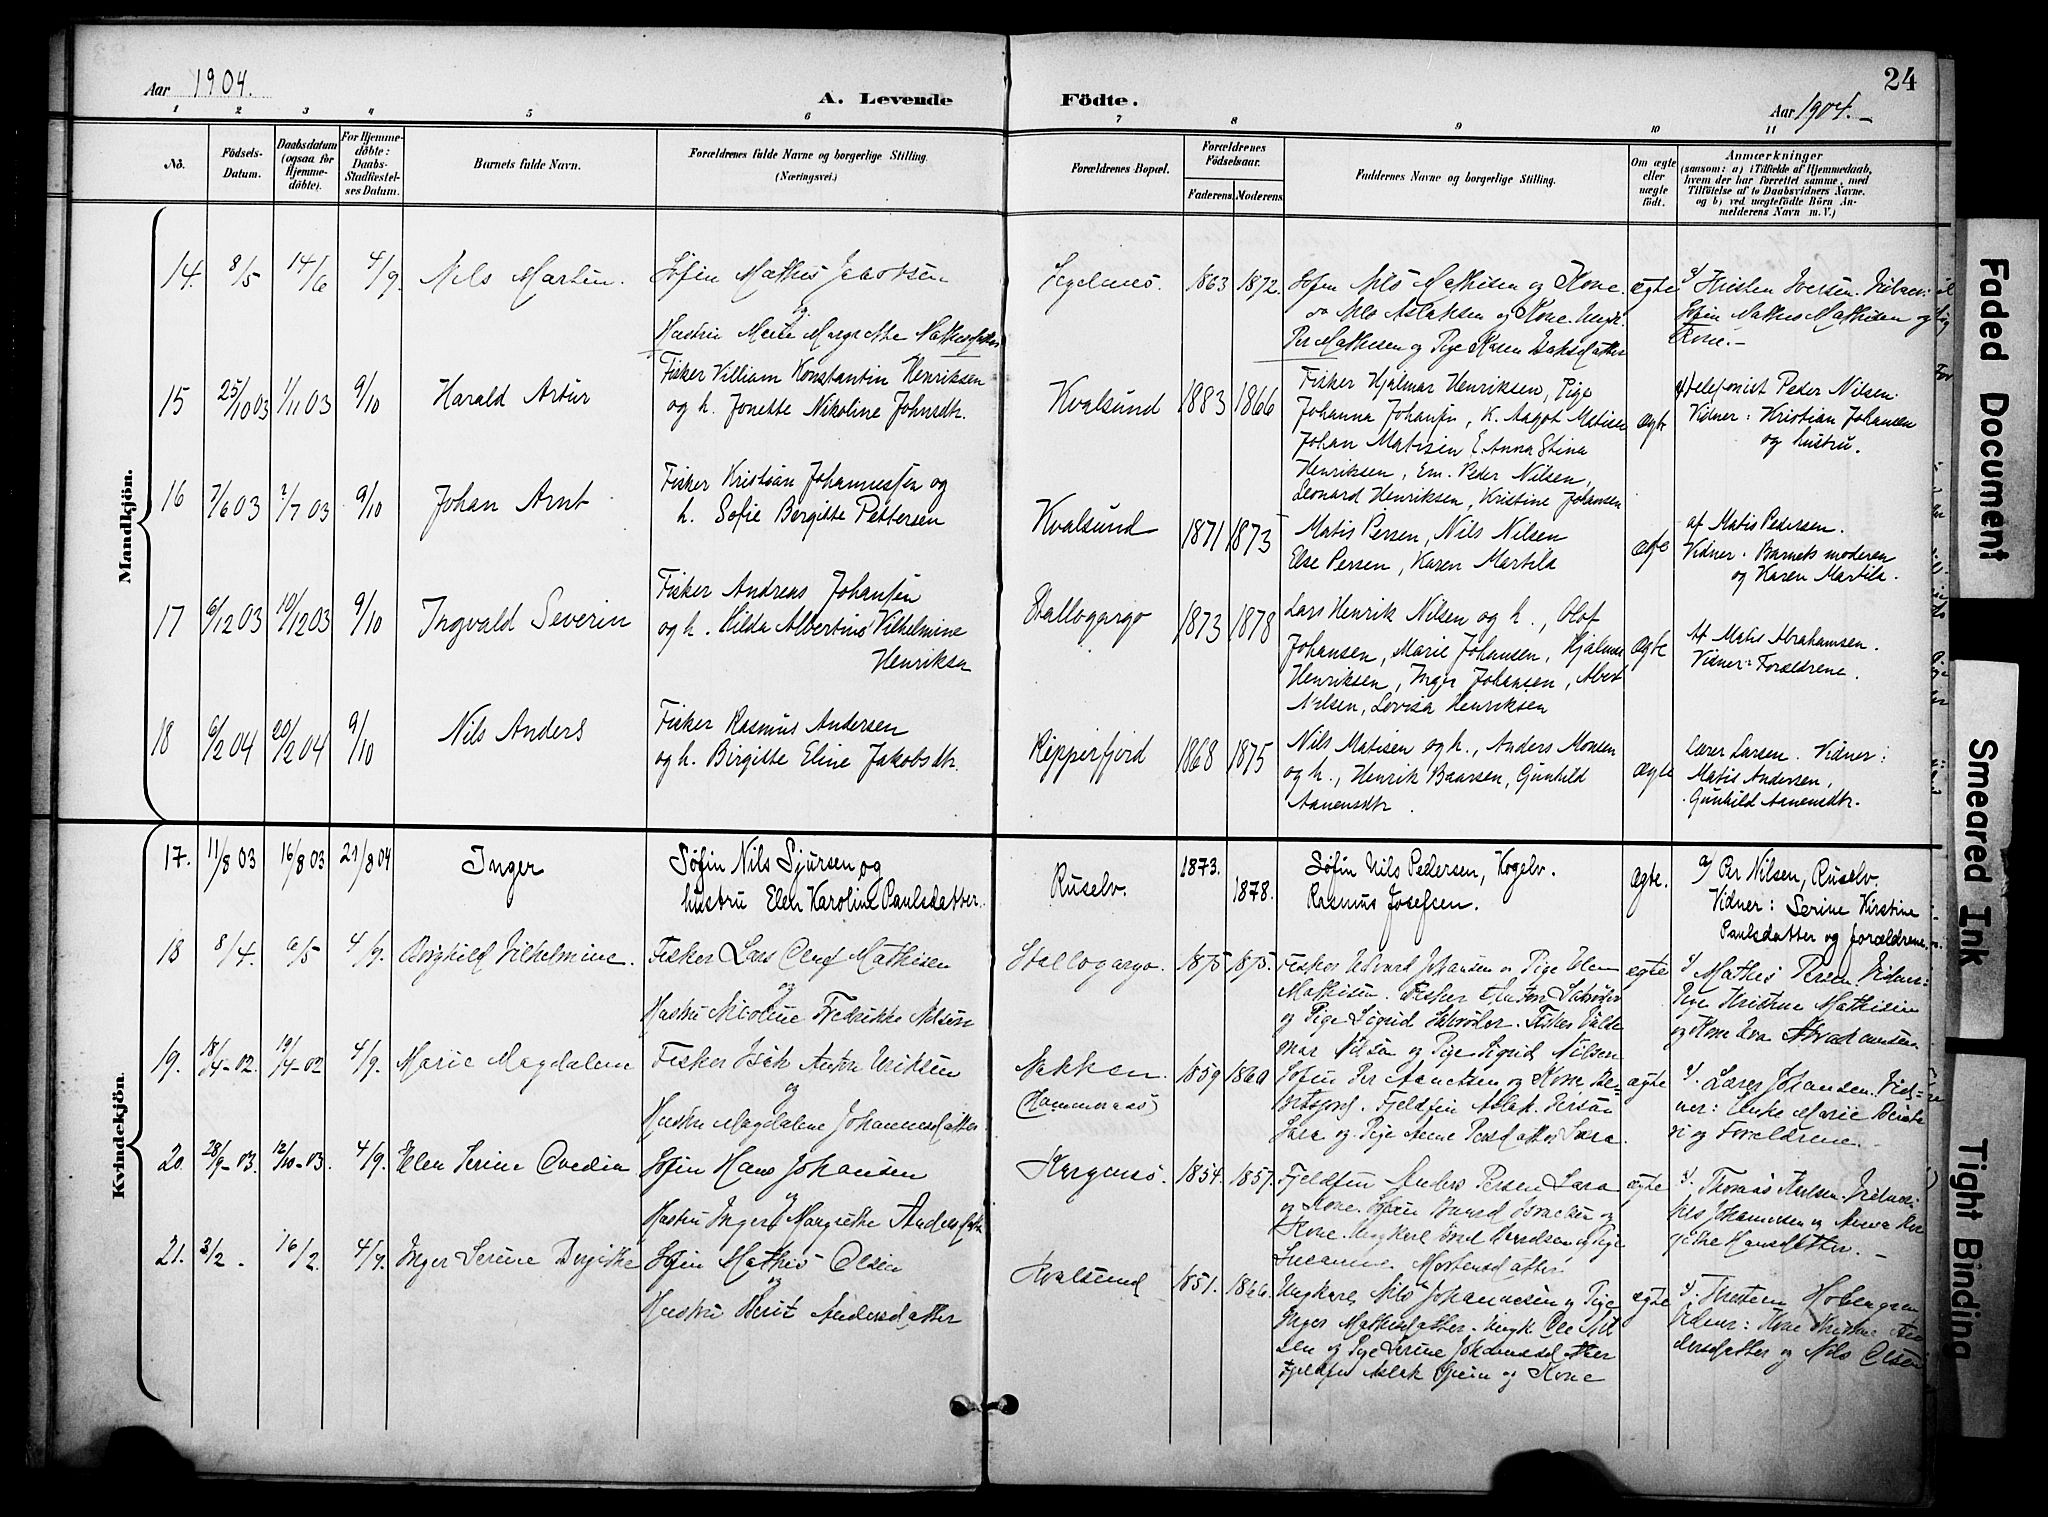 Aar 1904.
A. Levende Födte.
24
Aar 1904.
1 2 3 4 5 6 7 8 9 10 11
No.
Födsels-Datum.
Daabsdatum (ogsaa for Hjemmedöbte).
For Hjemmedöbte: Daabs-Stadfæstelses Datum.
Barnets fulde Navn.
Forældrenes fulde Navne og borgerlige Stilling. (Næringsvei.)
Forældrenes Bopæl.
Forældrenes Födselsaar.
Faderens. Moderens.
Faddernes Navne og borgerlige Stilling.
Om ægte eller uægte födt.
Anmærkninger
(saasom: a) i Tilfælde af Hjemmedaab, hvem der har forrettet samme, med Tilföielse af to Daabsvidners Navne. og b) ved uægtefödte Börn Anmelderens Navn m. V.)
Mandkjön.
14. 8/5 14/6 4/9. Nils Martin. Søfin Mathis Jacobsen
og
Hustru Marit Margrethe Mathisdatter
1863 1872. Søfin Nils Mathisen og Kone.
Nils Aslaksen og Kone. Ungk.
Per Mathisen og Pige Karen Isaksdatter
ægte
Iversen. Vidner:
Søfin Mathis Mathisen og
Kone.
15 25/10 03 1/11 03 9/10 Harald Artur
Fisker Villiam Konstantin Henriksen
og h. Jonette Nikoline Johnsdtr.
Kvalsund 1883 1866
Fisker Hjalmar Henriksen, Pige
Johanna Johansen, K. Aagot Matisen
Johan Matisen E. Anna Stina
Henriksen, Em. Peder Nilsen,
Leonard Henriksen, Kristine Johansen
ægte
Telefonist Peder Nilsen.
Vidner: Kristian Johansen
og hustru.
16 7/6 03 7/7 03 9/10 Johan Arnt
Fisker Kristian Johannessen og
h. Sofie Bergitte Pettersen
Kvalsund 1871 1873
Matis Persen, Nils Nilsen
Else Persen, Karen Martila
ægte
af Matis Pedersen.
Vidner. Barnets moderen
og Karen Martila.
17 6/12 03 10/12 03 9/10 Ingvald Severin
Fisker Andreas Johansen
og h. Hilda Albertine Vilhelmine
Henriksen
Stallogargo 1873 1878
Lars Henrik Nilsen og h., Olof
Johansen, Marie Johansen, Hjalmar
Henriksen, Inger Johansen, Albert
Nilsen, Lovisa Henriksen
ægte
Af Matis Abrahamsen.
Vidner: Forældrene.
18 6/2 04 20/2 04 9/10 Nils Anders
Fisker Rasmus Andersen
og h. Birgitte Eline Jakobsdtr.
Repperfjord 1868 1875
Nils Matisen og h., Anders Monsen
og h., Henrik Baarsen, Gunhild
Aanensdtr.
ægte
Lærer Larsen. Vidner:
Matis Andersen,
Gunhild Aanensdtr.
Kvindekjön.
17. 11/8 03 16/8 03 21/8 04 Inger
Søfin Nils Sjursen og
hustru Elen Karoline Paulsdatter.
Ruselv. 1873. 1878.
Søfin Nils Pedersen, Kogelv.
Rasmus Josefsen.
ægte.
a/ Per Nilsen, Ruselv.
Vidner: Serine Kirstine
Paulsdatter og forældrene.
18 8/4. 6/5 4/9. Borghild Vilhelmine.
Fisker Lars Oluf Mathisen
og
Hustru Nicoline Fredrikke Nilsen
Stallogargo. 1875 1875.
Fisker Edvard Johansen og Pige Elen
Mathisen. Fisker Anton Schrøder
og Pige Sigrid Schrøder. Fisker Valde
mar Nilsen og Pige Sigrid Nilsen
ægte
Mathis Persen. Vidner:
Pige Kristine Mathisen
og Kone
19. 18/4-02. 19/4-02 4/9. Marie Magdalene
Fisker Isak Anton Eriksen
og
Hustru Magdalene Johannesdatter
Bakken
(Hammernæs)
1859 1860
Søfin Per og Kone Be-
Fjeldfin Aslak Persen
Sara og Pige Anne Persdatter Sara.
ægte
Lærer Johansen. Vid-
ner: Marie
og Forældrene.
20. 28/9-03. 12/10-03. 4/9. Elen Serine Ovedia
Søfin Hans Johansen
og
Hustru Inger Margrethe Andersdatter
1854. 1857.
Fjeldfin Anders Persen Sara
og Kone. Søfin
Kone. Ungkarl og Pige
Susanne Mortensdatter
ægte
Thomas Karlsen. Vidner:
Johannesen og
Hansdatter.
21. 3/2. 16/2. 4/9. Inger Serine Birgitte
Søfin Mathis Olsen
og
Hustru Berit Andersdatter
Kvalsund 1851. 1866.
Ungkarl Nils Johannesen og Pige
Inger Mathisdatter. Ungk Ole Nil
sen og Pige Serine Johannesdatter
Fjeldfin Aslak og Kone
ægte
Vidner: Kone Kristine An-
dersdatter og Nils Olsen
Faded Document
Smeared Ink
Tight Binding